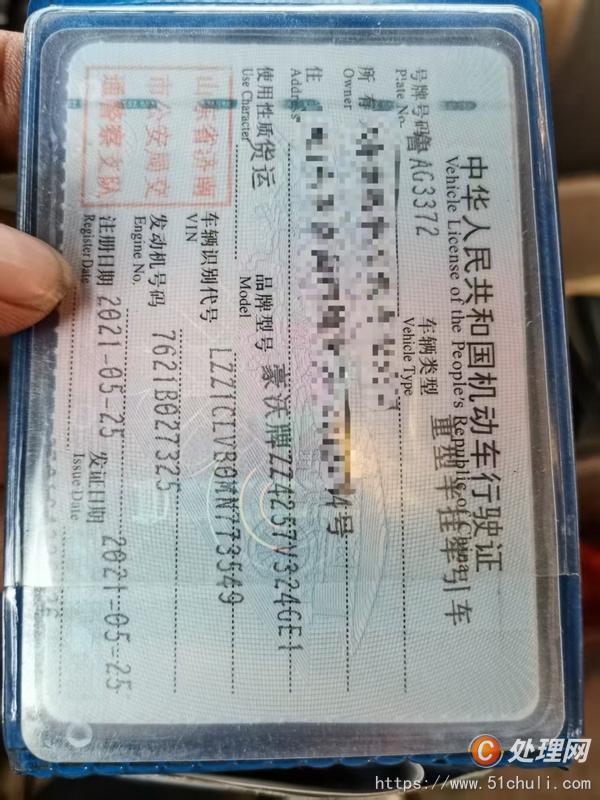 中华人民共和国机动车行驶证
Vehicle License of the People's Republic of China
号牌号码 鲁AG3372 车辆类型 重型半挂牵引车
Plate No. Vehicle Type
所有
Owner
住 号
Address
使用性质 货运 品牌型号 豪沃牌ZZ4257V324GE1
Use Character Model
山东省济南
市公安局交
通警察支队
车辆识别代号 LZZ1CLVB0MN773549
VIN
发动机号码 7621B027325
Engine No.
注册日期 2021-05-25 发证日期 2021-05-25
Register Date Issue Date
C 处理网
https://www.51chuli.com/